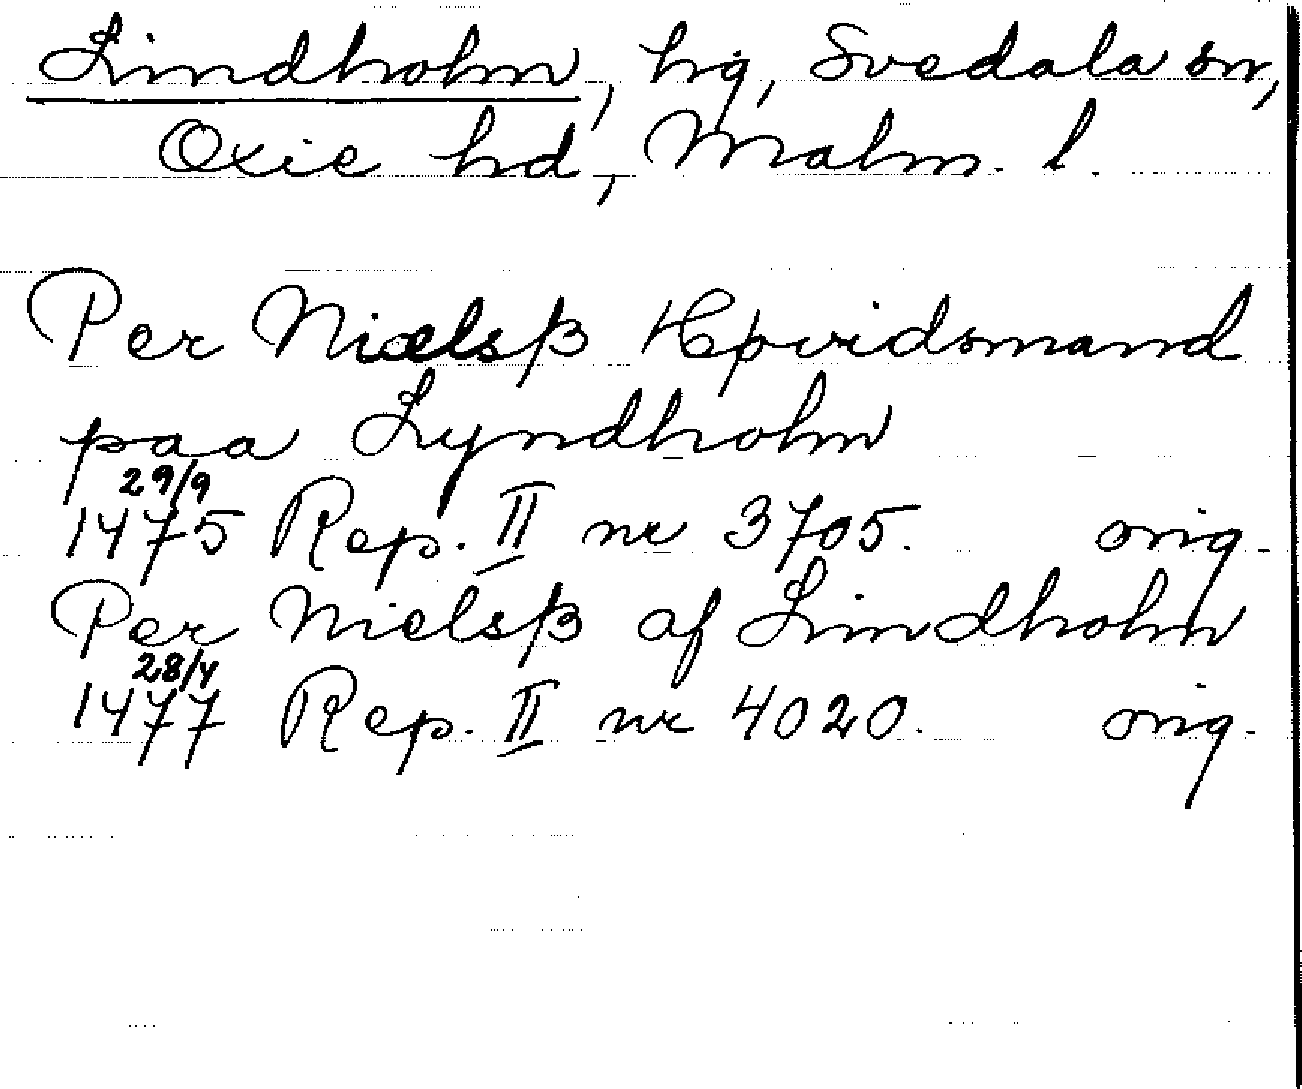 Lindholm, hg, Svedala sn,
Oxie hd, Malm. l.
Per Nielsß Høvidsmand
paa Lyndholm
29/9
1475 Rep. II nr 3705. orig.
Per Nielsß af Lindholm
28/4
1477 Rep. II nr 4020. orig.